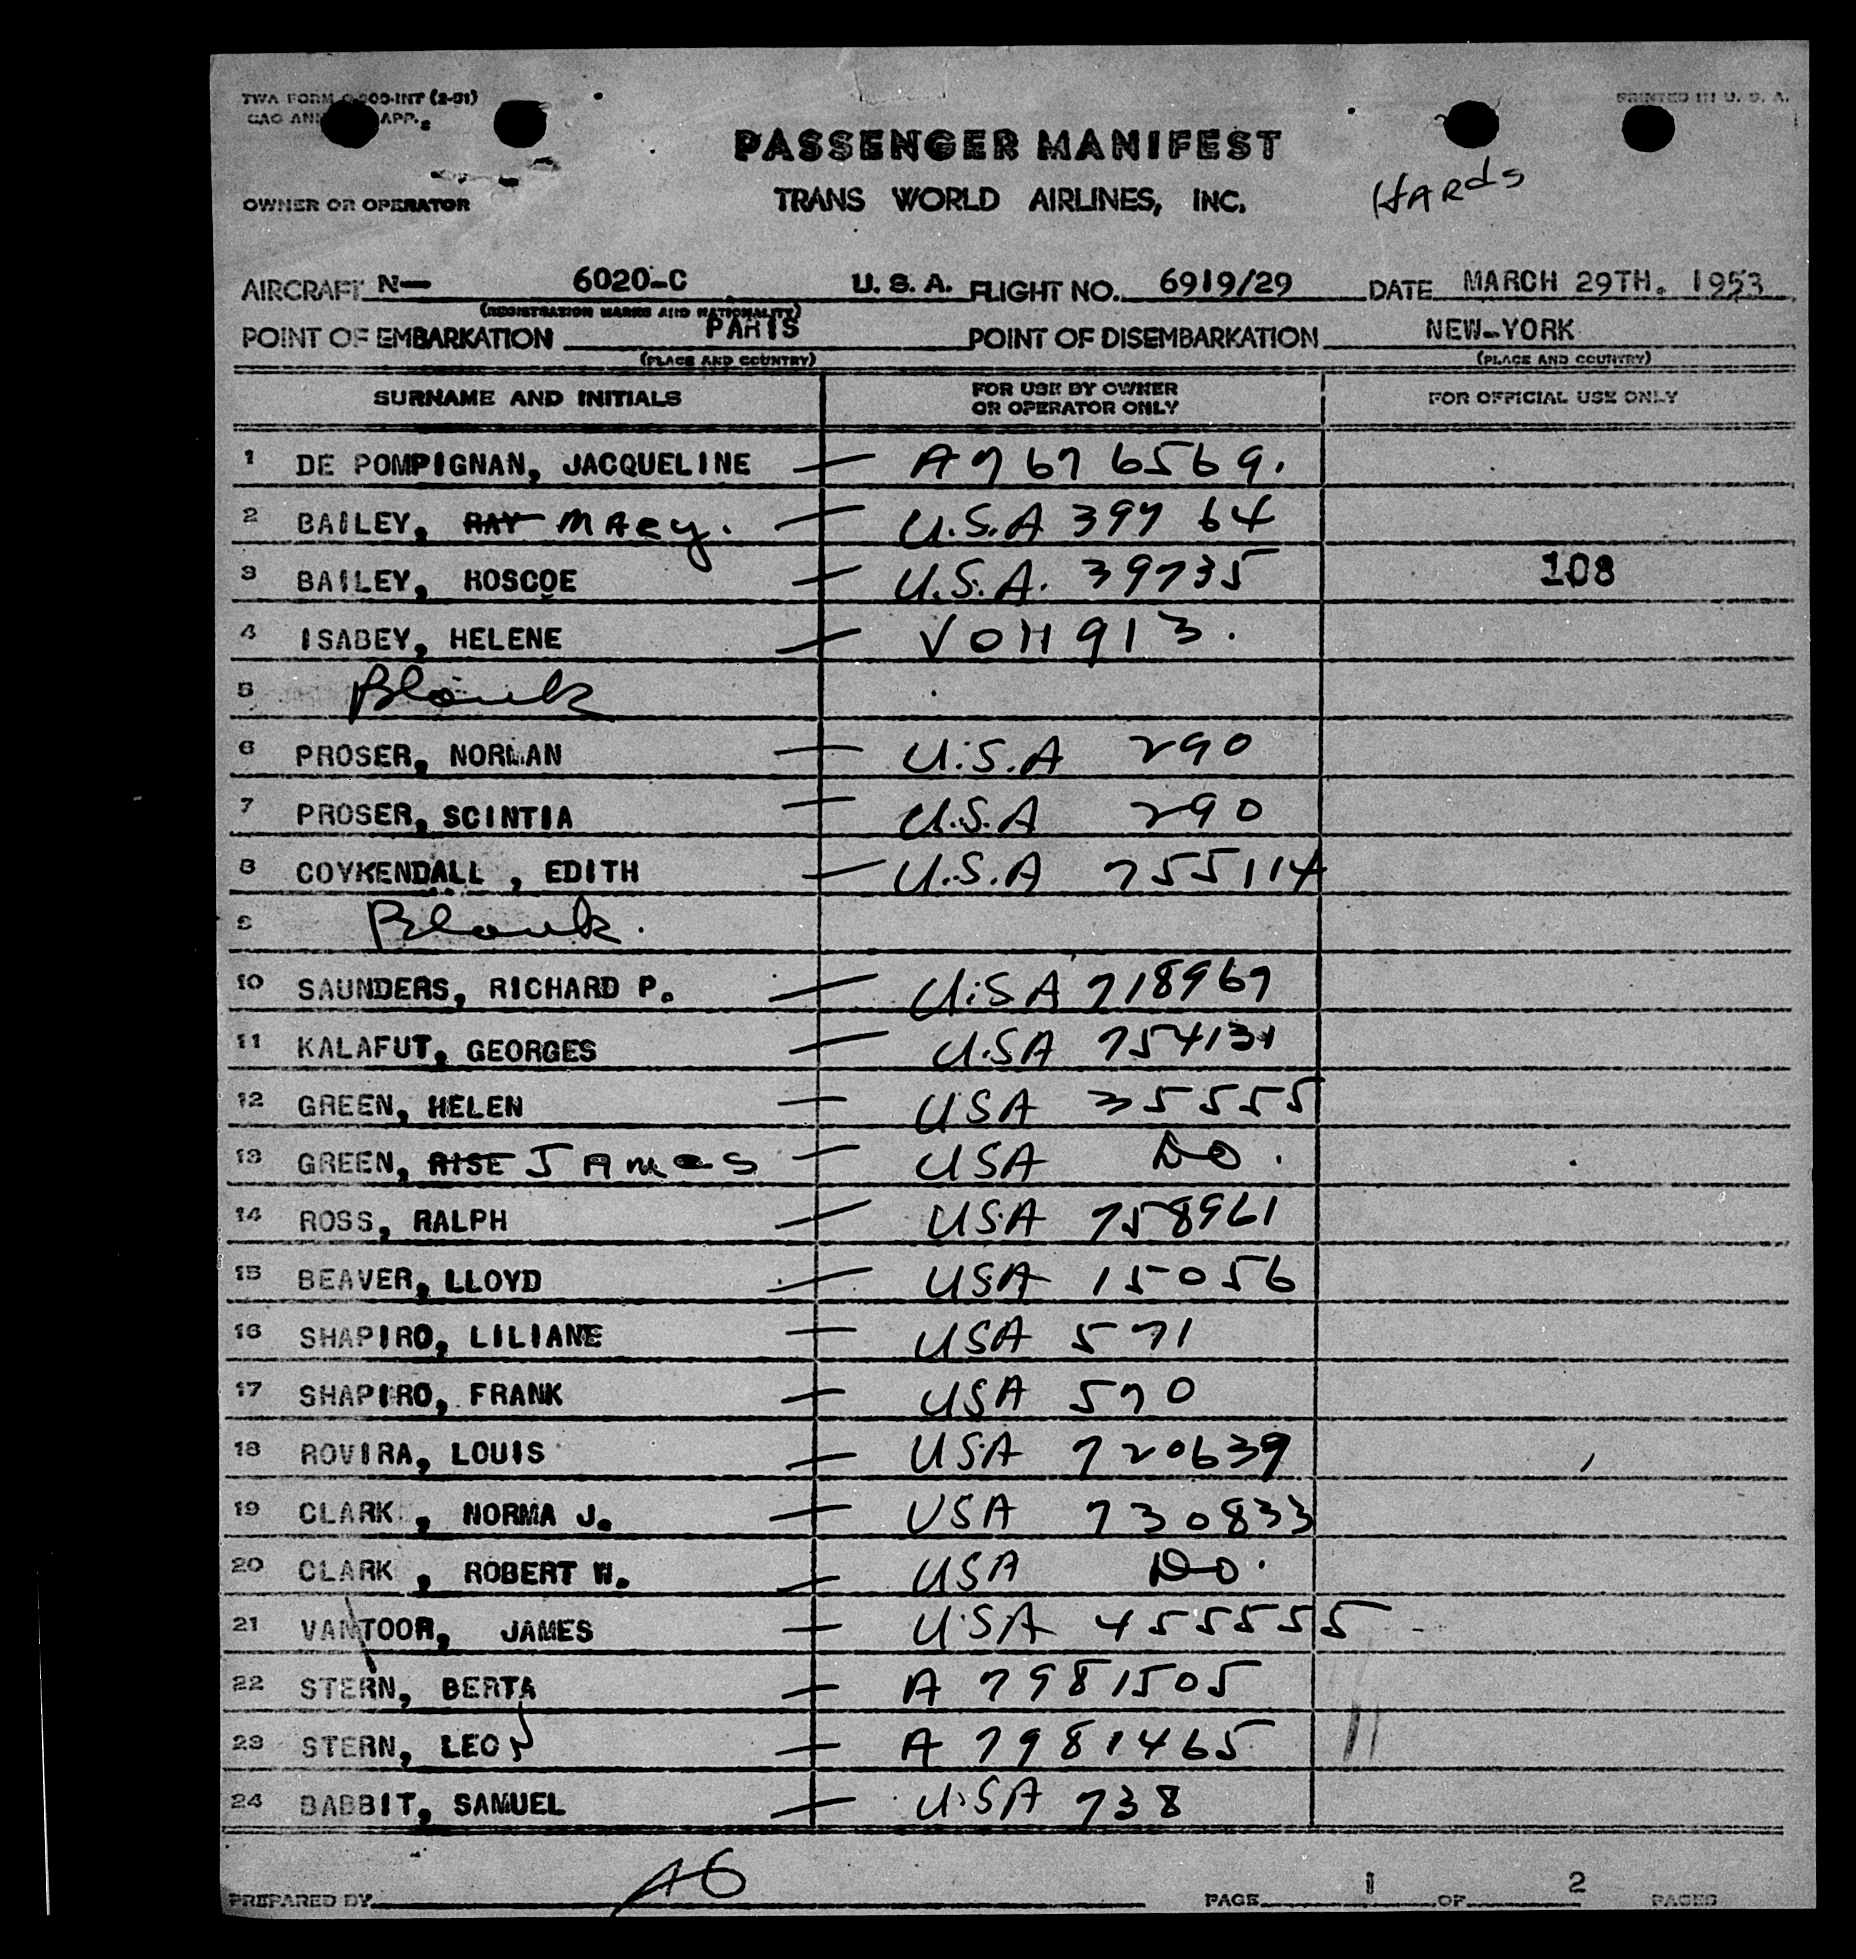 TWA FORM
PRINTED IN U. S. A.
PASSENGER MANIFEST
OWNER OR OPERATOR TRANS WORLD AIRLINES, INC. HARds
AIRCRAFT N— 6020-C U. S. A. FLIGHT NO. 6919/29 DATE MARCH 29TH. 1953
(REGISTRATION MARKS AND NATIONALITY)
POINT OF EMBARKATION PARIS POINT OF DISEMBARKATION NEW-YORK
(PLACE AND COUNTRY) (PLACE AND COUNTRY)
SURNAME AND INITIALS FOR USE BY OWNER OR OPERATOR ONLY FOR OFFICIAL USE ONLY
1 DE POMPIGNAN, JACQUELINE — A7676569.
2 BAILEY, RAY MARY. — U.S.A 39764
3 BAILEY, ROSCOE — U.S.A. 39735 108
4 ISABEY, HELENE — VOH913.
5 Blank
6 PROSER, NORMAN — U.S.A 290
7 PROSER, SCINTIA — U.S.A 290
8 COYKENDALL , EDITH — U.S.A 755114
9 Blank.
10 SAUNDERS, RICHARD P. — U.S.A 718967
11 KALAFUT, GEORGES — U.S.A 754131
12 GREEN, HELEN — USA 35555
13 GREEN, RISE JAMES — USA DO.
14 ROSS, RALPH — USA 758961
15 BEAVER, LLOYD — USA 15056
16 SHAPIRO, LILIANE — USA 571
17 SHAPIRO, FRANK — USA 570
18 ROVIRA, LOUIS — USA 720639
19 CLARK , NORMA J. — USA 730833
20 CLARK , ROBERT W. — USA DO.
21 VANTOOR, JAMES — USA 455555
22 STERN, BERTA — A 7981505
23 STERN, LEON — A 7981465
24 BABBIT, SAMUEL — U.SA 738
PREPARED BY PAGE 1 OF 2 PAGES